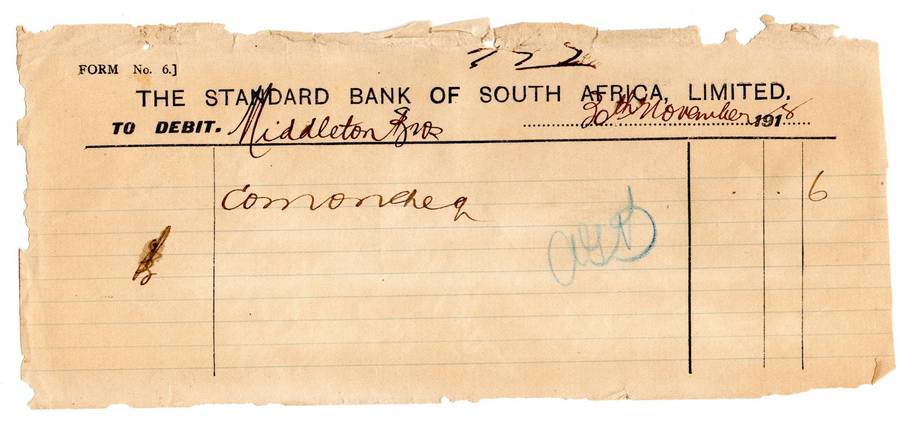 FORM No. 6.]
THE STANDARD BANK OF SOUTH AFRICA, LIMITED.
TO DEBIT. Middleton Bros 30th November 1918
Com on cheq 6